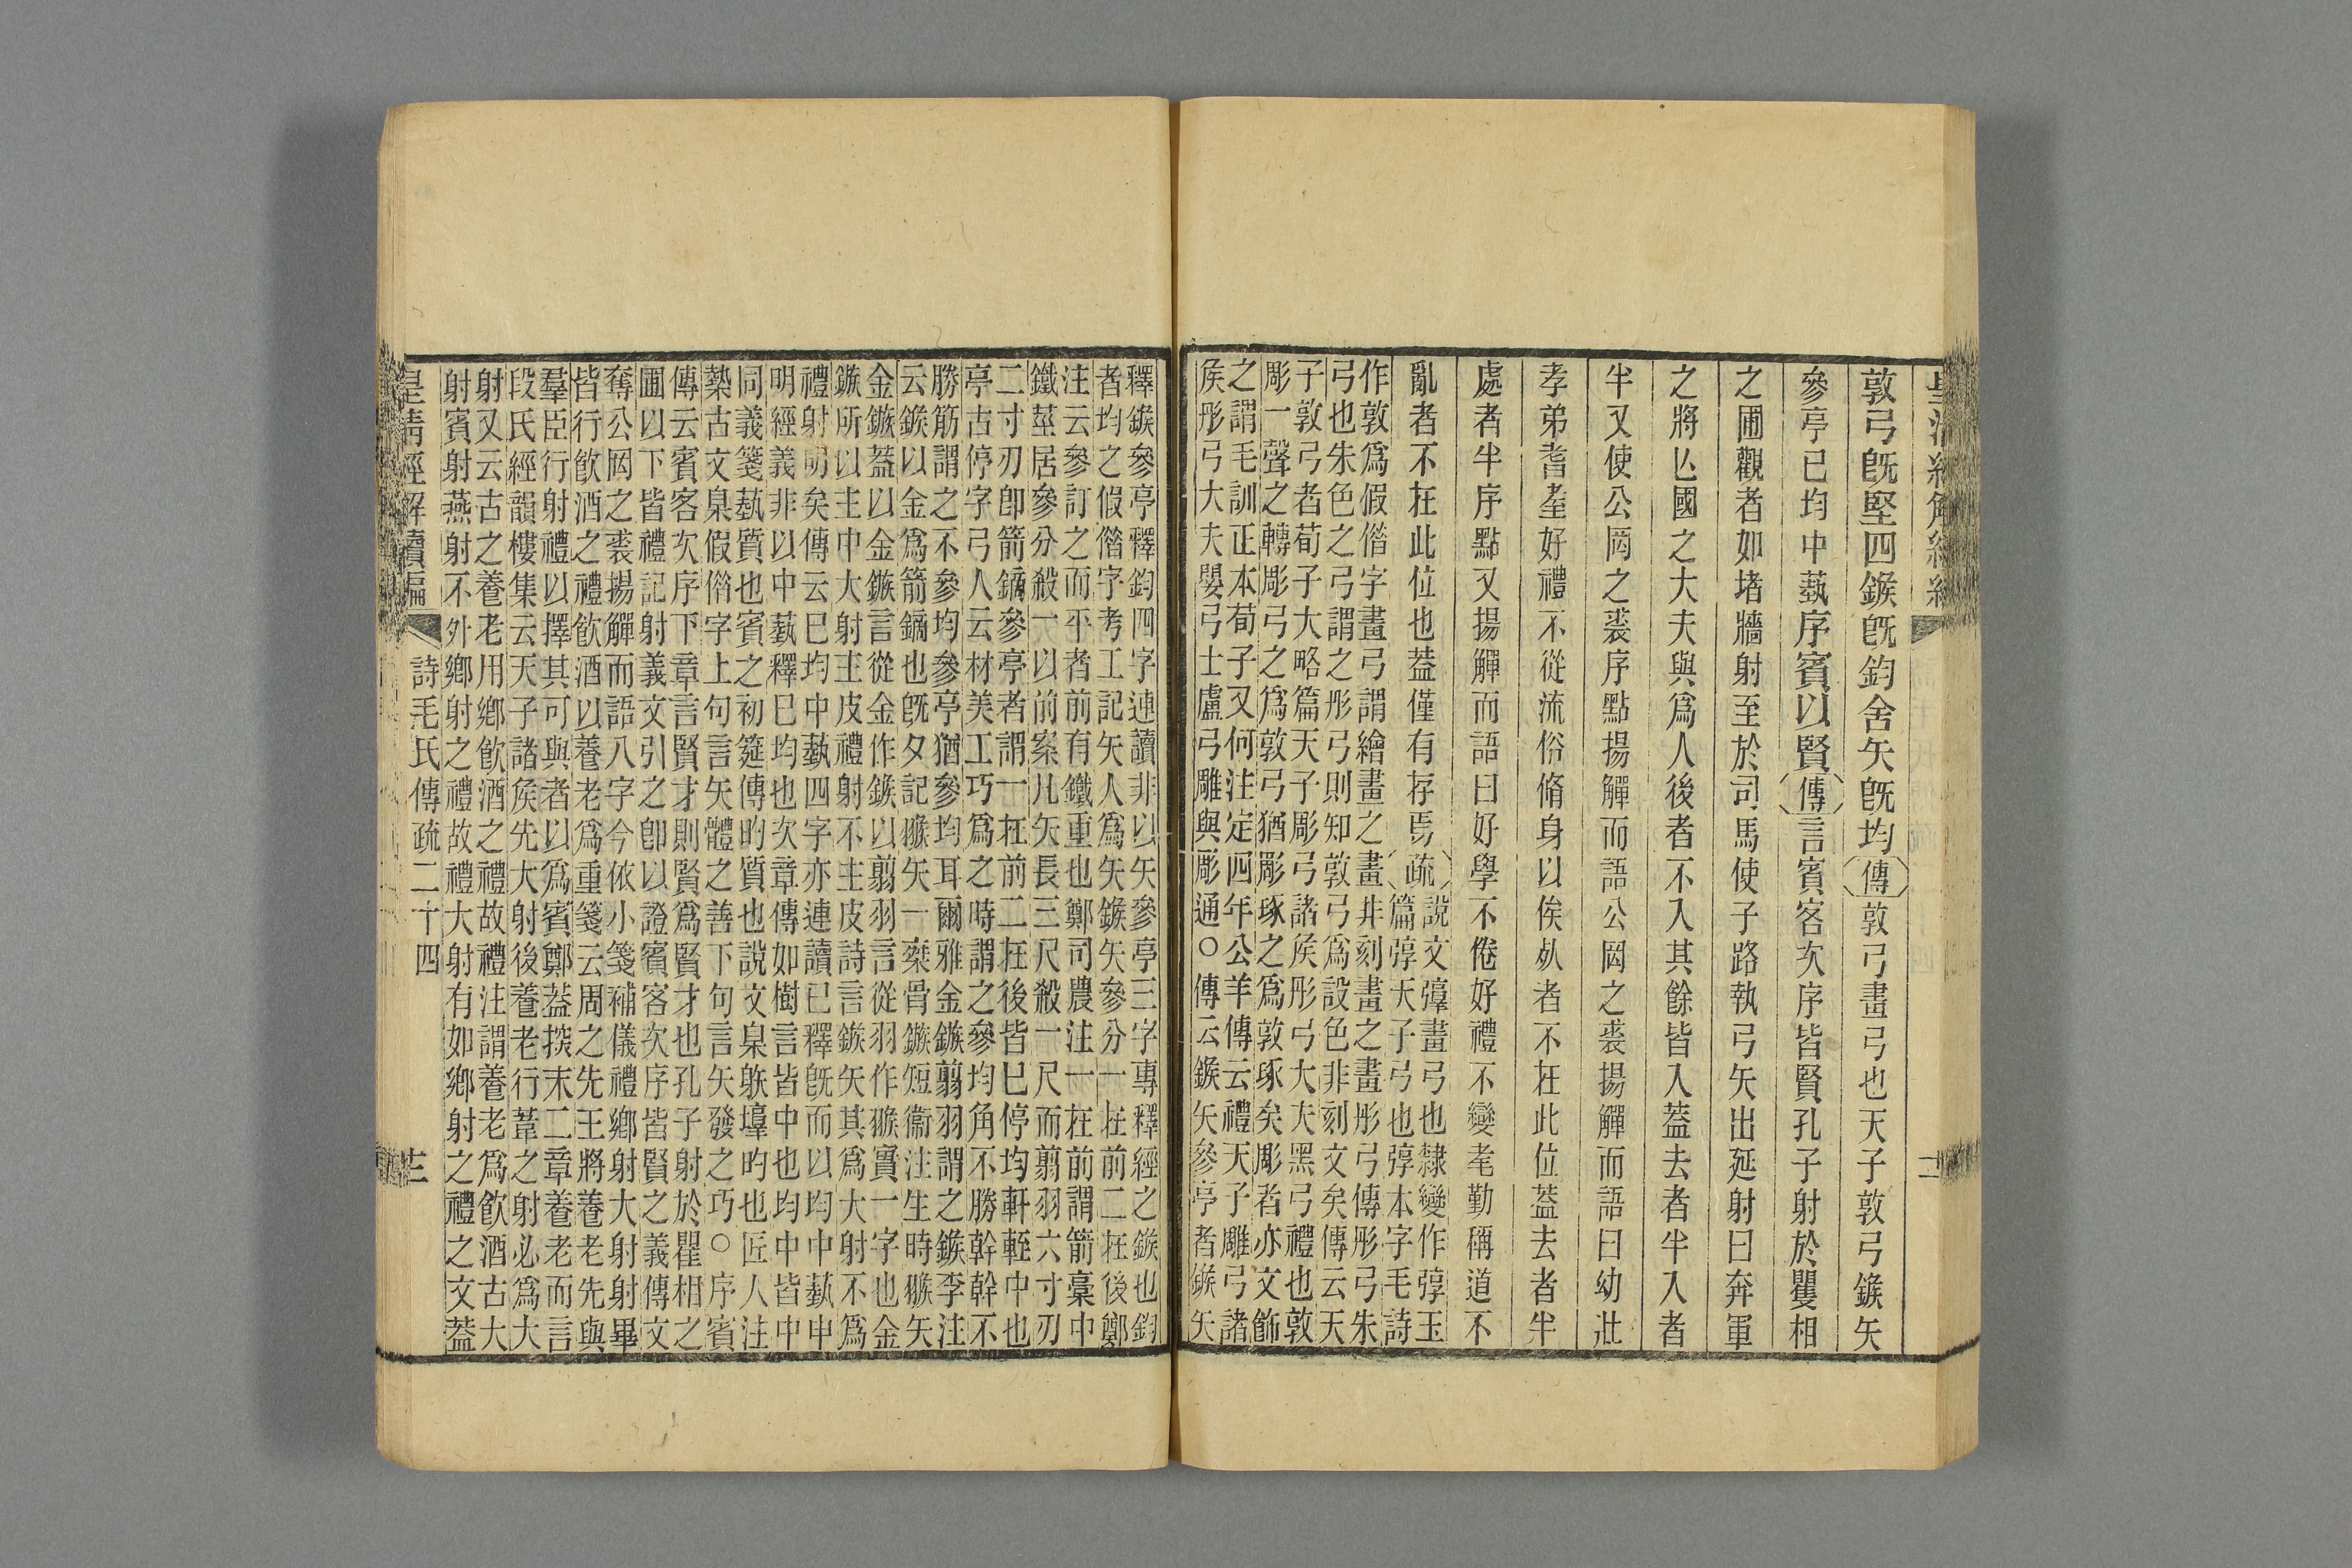 敦弓旣堅四鍭旣鈞舍矢旣均傳敦弓畫弓也天子敦弓鍭矢
參亭已均中蓺序賓以賢傳言賓客次序皆賢孔子射於矍相
之圃觀者如堵牆射至於司馬使子路執弓矢出延射曰奔軍
之將亾國之大夫與爲人後者不入其餘皆入蓋去者半入者
半又使公罔之裘序點揚觶而語公罔之裘揚觶而語曰幼壯
孝弟耆耋好禮不從流俗脩身以俟死者不在此位蓋去者半
處者半序點又揚觶而語曰好學不倦好禮不變耄勤稱道不
亂者不在此位也蓋僅有存焉疏
說文弴畫弓也隸變作弴玉
篇弴天子弓也弴本字毛詩
作敦爲假借字畫弓謂繪畫之畫非刻畫之畫彤弓傳彤弓朱
弓也朱色之弓謂之彤弓則知敦弓爲設色非刻文矣傳云天
子敦弓者荀子大略篇天子彫弓諸矦彤弓大夫黑弓禮也敦
彫一聲之轉彫弓之爲敦弓猶彫琢之爲敦琢矣彫者亦文飾
之謂毛訓正本荀子又何注定四年公羊傳云禮天子雕弓諸
矦彤弓大夫嬰弓士盧弓雕與彫通○傳云鍭矢參亭者鍭矢
釋鍭參亭釋鈞四字連讀非以矢參亭三字專釋經之鍭也鈞
者均之假借字考工記矢人爲矢鍭矢參分一在前二在後鄭
注云參訂之而平者前有鐵重也鄭司農注一在前謂箭稾中
鐵莖居參分殺一以前案凡矢長三尺殺一尺而翦羽六寸刃
二寸刃卽箭鏑參亭者謂一在前二在後皆已停均軒輊中也
亭古停字弓人云材美工巧爲之時謂之參均角不勝幹幹不
勝筋謂之不參均參亭猶參均耳爾雅金鏃翦羽謂之鍭李注
云鍭以金爲箭鏑也旣夕記猴矢一椉骨鏃短衞注生時猴矢
金鏃蓋以金鏃言從金作鍭以翦羽言從羽作猴實一字也金
鏃所以主中大射主皮禮射不主皮詩言鍭矢其爲大射不爲
禮射明矣傳云已均中蓺四字亦連讀已釋旣而以均中蓺中
明經義非以中蓺釋已均也次章傳如樹言皆中也均中皆中
同義箋蓺質也賓之初筵傳旳質也說文臬躲壔旳也匠人注
槷古文臬假借字上句言矢體之善下句言矢發之巧○序賓
傳云賓客次序下章言賢才則賢爲賢才也孔子射於矍相之
圃以下皆禮記射義文引之卽以證賓客次序皆賢之義傳文
奪公罔之裘揚觶而語八字今依小箋補儀禮鄉射大射射畢
皆行飮酒之禮飮酒以養老爲重箋云周之先王將養老先與
羣臣行射禮以擇其可與者以爲賓鄭蓋探末二章養老而言
段氏經韻樓集云天子諸矦先大射後養老行葦之射必爲大
射又云古之養老用鄉飮酒之禮故禮注謂養老爲飮酒古大
射賓射燕射不外鄉射之禮故禮大射有如鄉射之禮之文蓋
皇淸經解續編
詩毛氏傳疏二十四